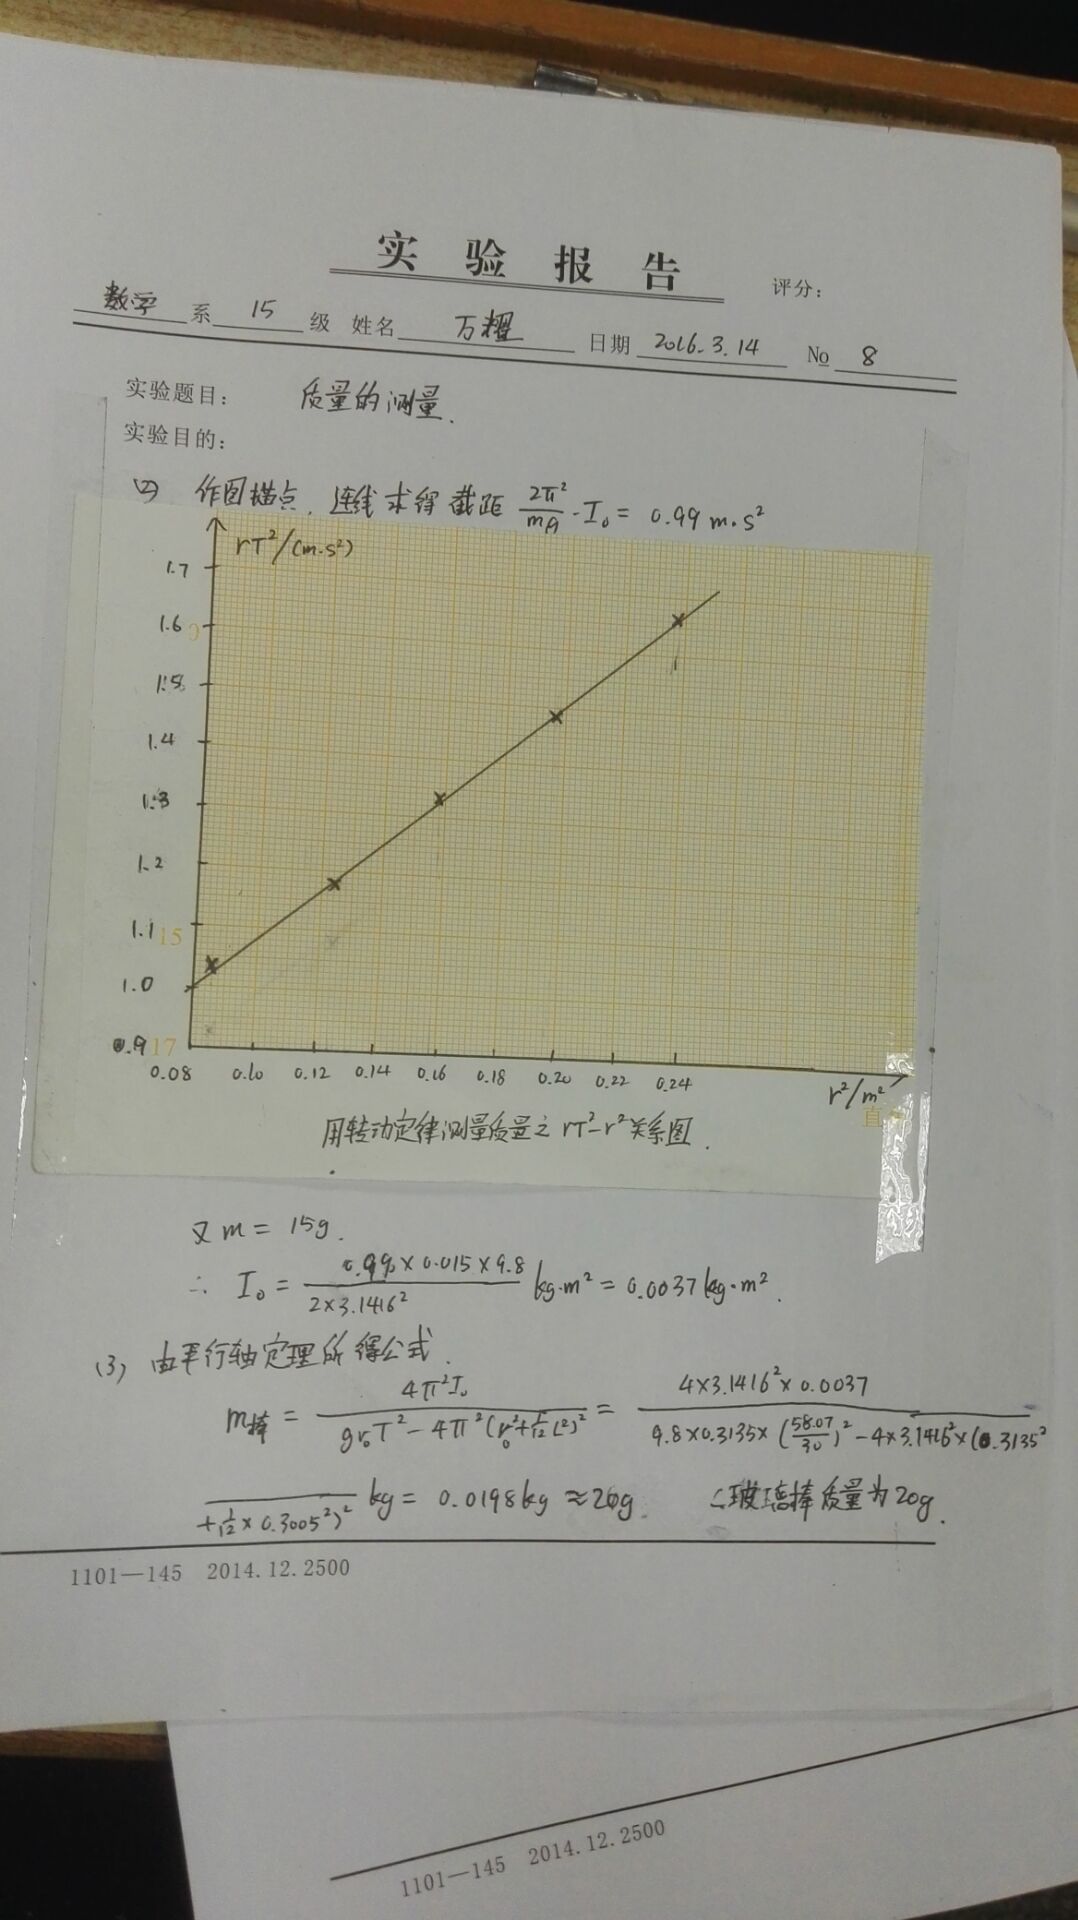 实 验 报 告
评分：
数学 系 15 级 姓名 万耀 日期 2016.3.14 № 8
实验题目： 质量的测量.
实验目的：
(2) 作图描点，连线求得截距 2π²/mg · I₀ = 0.99 m·s²
rT²/(m·s²)
1.7
1.6
1.5
1.4
1.3
1.2
1.1 15
1.0
0.9 17
0.08 0.10 0.12 0.14 0.16 0.18 0.20 0.22 0.24 r²/m²
用转动定律测量质量之 rT²-r²关系图.
又 m = 15g.
∴ I₀ = 0.99×0.015×9.8 / 2×3.1416² kg·m² = 0.0037kg·m².
(3) 由平行轴定理所得公式.
m棒 = 4π²I₀ / gr₀T²-4π²(r₀²+1/12 L²)² = 4×3.1416²×0.0037 / 9.8×0.3135×(58.07/30)²-4×3.1416²×(0.3135²
+1/12×0.3005²)² kg = 0.0198kg ≈ 20g. ∴玻璃棒质量为20g.
1101—145 2014.12.2500
1101—145 2014.12.2500